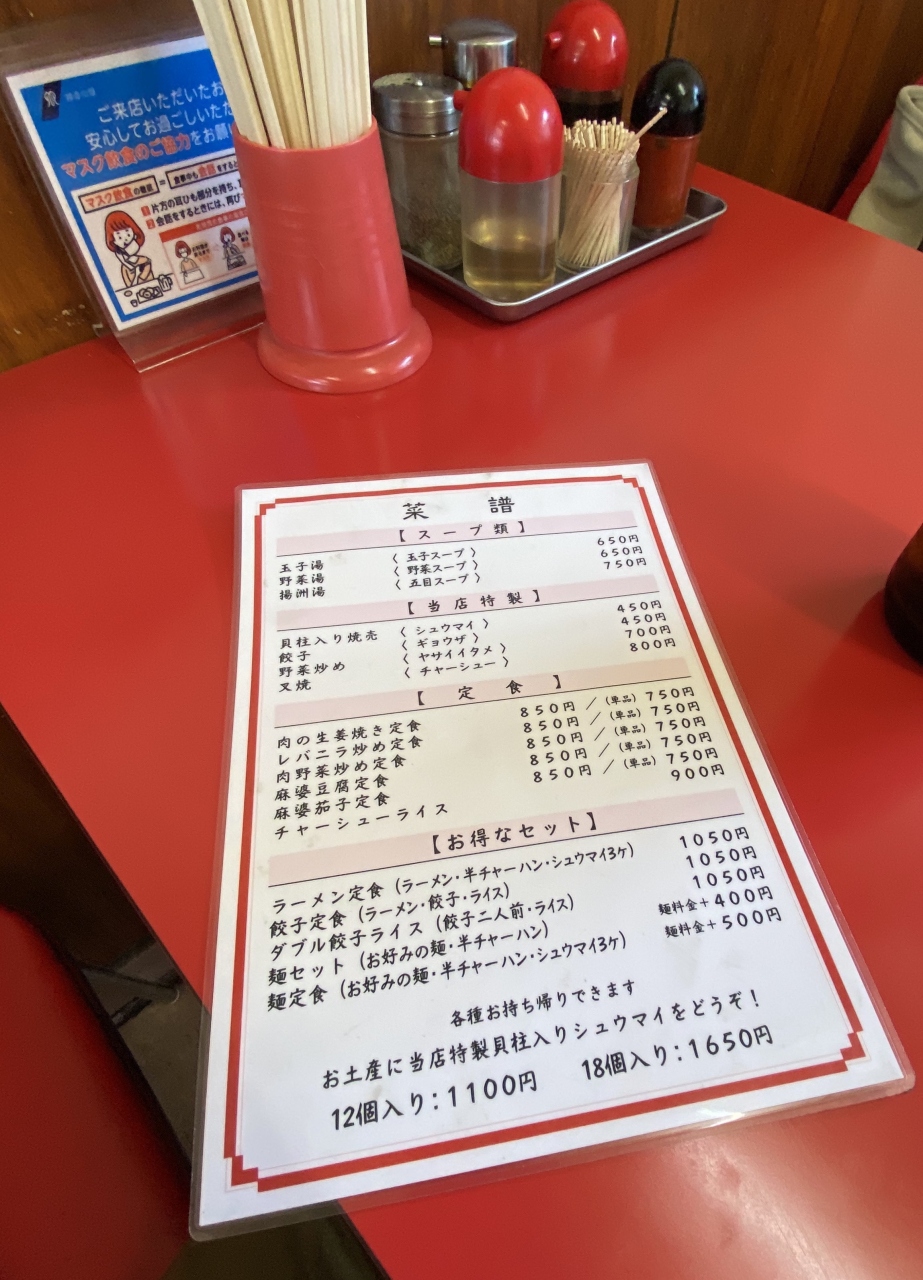 ご来店いただいたお
安心してお過ごしいただ
マスク飲食のご協力をお願い
マスク飲食の徹底 = 食事中も会話をすると
1 片方の耳ひも部分を持ち、
2 会話をするときには、再び
菜 譜
【スープ類】
玉子湯 〈 玉子スープ 〉 650円
野菜湯 〈 野菜スープ 〉 650円
揚洲湯 〈 五目スープ 〉 750円
【当店特製】
貝柱入り焼売 〈 シュウマイ 〉 450円
餃子 〈 ギョウザ 〉 450円
野菜炒め 〈 ヤサイイタメ 〉 700円
叉焼 〈 チャーシュー 〉 800円
【 定 食 】
肉の生姜焼き定食 850円／(単品) 750円
レバニラ炒め定食 850円／(単品) 750円
肉野菜炒め定食 850円／(単品) 750円
麻婆豆腐定食 850円／(単品) 750円
麻婆茄子定食 850円／(単品) 750円
チャーシューライス 900円
【お得なセット】
ラーメン定食 (ラーメン・半チャーハン・シュウマイ3ケ) 1050円
餃子定食 (ラーメン・餃子・ライス) 1050円
ダブル餃子ライス (餃子二人前・ライス) 1050円
麺セット (お好みの麺・半チャーハン) 麺料金+400円
麺定食 (お好みの麺・半チャーハン・シュウマイ3ケ) 麺料金+500円
各種お持ち帰りできます
お土産に当店特製貝柱入りシュウマイをどうぞ！
12個入り：1100円 18個入り：1650円